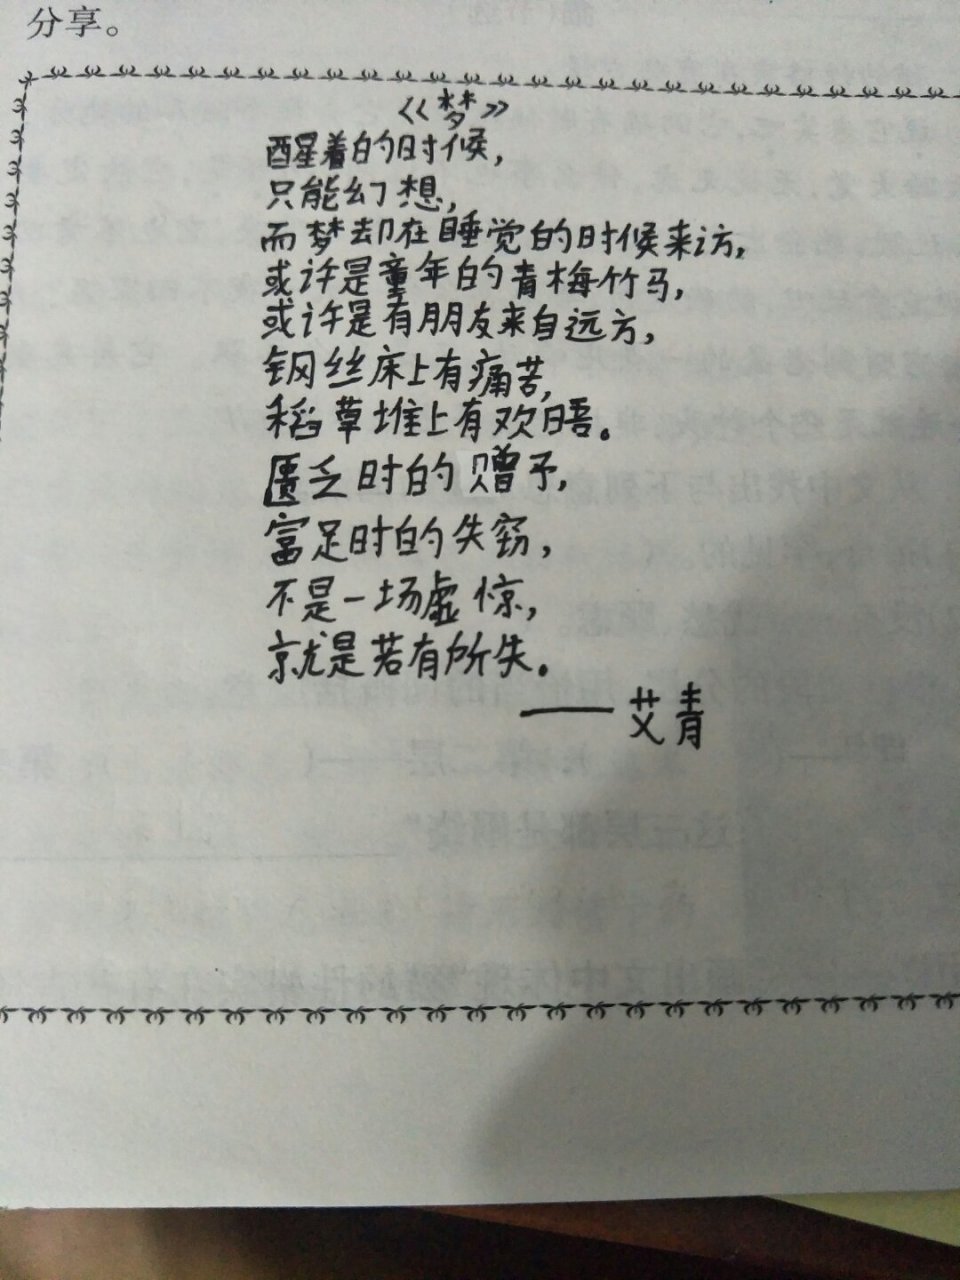 分享。
《梦》
醒着的时候，
只能幻想，
而梦却在睡觉的时候来访，
或许是童年的青梅竹马，
或许是有朋友来自远方，
钢丝床上有痛苦，
稻草堆上有欢晤。
匮乏时的赠予，
富足时的失窃，
不是一场虚惊，
就是若有所失。
——艾青